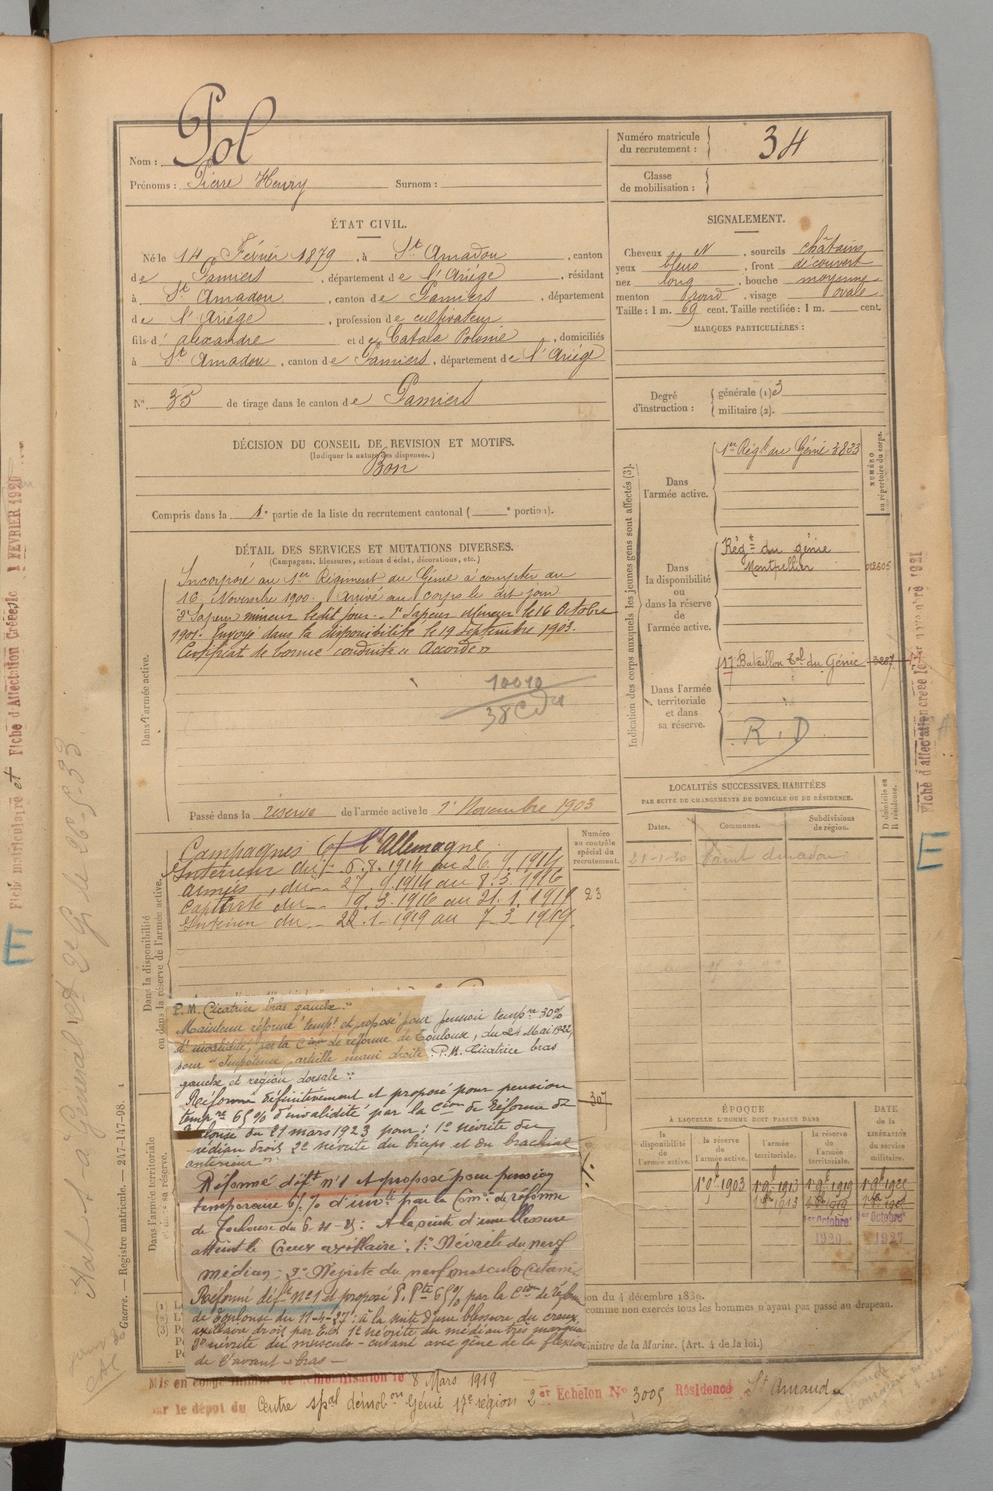 Nom : Pol
Prénoms : Pierre Henry Surnom :
Numéro matricule du recrutement : 34
Classe de mobilisation :
ÉTAT CIVIL.
Né le 14 Février 1879, à St Amadou, canton
de Pamiers, département de l'Ariége, résidant
à St Amadou, canton de Pamiers, département
de l'Ariége, profession de cultivateur
fils d' alexandre et de Catala Polonie, domiciliés
à St Amadou, canton de Pamiers, département de l'Ariége
N° 35 de tirage dans le canton de Pamiers
SIGNALEMENT.
Cheveux N, sourcils châtains
yeux bleus, front découvert
nez long, bouche moyenne
menton rond, visage ovale
Taille : 1 m. 69 cent. Taille rectifiée : 1 m. cent.
MARQUES PARTICULIÈRES :
Degré d'instruction : générale (1) 3
militaire (2).
DÉCISION DU CONSEIL DE REVISION ET MOTIFS.
(Indiquer la nature des dispenses.)
Bon
Compris dans la 1e partie de la liste du recrutement cantonal ( e portion).
DÉTAIL DES SERVICES ET MUTATIONS DIVERSES.
(Campagnes, blessures, actions d'éclat, décorations, etc.)
Dans l'armée active.
Incorporé au 1er Régiment du Génie à compter du
16 Novembre 1900. Arrivé au corps le dit jour
2e Sapeur mineur ledit jour. 1er Sapeur Mineur le 16 Octobre
1901. Envoyé dans la disponibilité le 19 Septembre 1903.
Certificat de bonne conduite « Accordé »
Passé dans la réserve de l'armée active le 1er Novembre 1903
Dans la disponibilité ou dans la réserve de l'armée active.
Campagnes Ct l'Allemagne
Intérieur du 6.8.1914 au 26.9.1914
armées, du 27.9.1914 au 8.3.1916
Captivité du 9.3.1916 au 21.1.1919
Intérieur du 22.1.1919 au 7.3.1919.
Numéro au contrôle spécial du recrutement.
23
307
P. M. Cicatrice bras gauche."
Maintenu réformé tempt et proposé pour pension tempre 30%
d'invalidité, par la Cion de réforme de Toulouse, du 24 Mai 1922,
pour "Impotence, orteille droite. P.M. Cicatrice bras
gauche et région dorsale."
Réformé définitivement et proposé pour pension
tempre 65% d'invalidité par la Cion de Réforme de
Toulouse du 21 mars 1923 pour : 1° névrite du
médian droit 2° névrite du biceps et du brachial
antérieur"
Réformé déft n°1 et proposé pour pension
temporaire 65% d'invté par la Comn de réforme
de Toulouse du : A la suite d'une blessure
atteint le Creux axillaire : 1° Névrite du nerf
médian : 2° Névrite du nerf musculo Cutané
Réformé déft n°1 et proposé P. Pte 65% par la Cion de Réforme
de Toulouse du 11-4-27 : à la suite d'une blessure du creux
axillaire droit par E.O. 1° névrite du médian très marquée
2° névrite du musculo-cutané avec gêne de la flexion
de l'avant-bras
Indication des corps auxquels les jeunes gens sont affectés (3).
Dans l'armée active.
1er Régt du Génie 3833
NUMÉRO au répertoire du corps.
Dans la disponibilité ou dans la réserve de l'armée active.
Régt du génie
Montpellier 012605
Dans l'armée territoriale et dans sa réserve.
17 Bataillon tal du Génie 3207
R. D
LOCALITÉS SUCCESSIVES HABITÉES
PAR SUITE DE CHANGEMENTS DE DOMICILE OU DE RÉSIDENCE.
Dates. Communes. Subdivisions de région. D domicile ou R résidence.
21-1-30 Saint Amadou
ÉPOQUE
À LAQUELLE L'HOMME DOIT PASSER DANS
la disponibilité de l'armée active. la réserve de l'armée active. l'armée territoriale. la réserve de l'armée territoriale.
DATE DE LA LIBÉRATION DU SERVICE MILITAIRE.
1er 9bre 1903
1er Octobre 1920
1er Octobre 1927
Dans l'armée territoriale
du 4 décembre 1889.
comme non exercés tous les hommes n'ayant pas passé au drapeau.
Ministre de la Marine. (Art. 4 de la loi.)
Guerre. — Registre matricule. — 247-147-98.
démobilisation le 8 Mars 1919
par le dépôt du Centre spal démobon Génie 17e région 2er Echelon N° 3005 Résidence St Amadou
Fiche matriculaire et Fiche d'Affectation Créées le 1 FEVRIER 1920
E
E